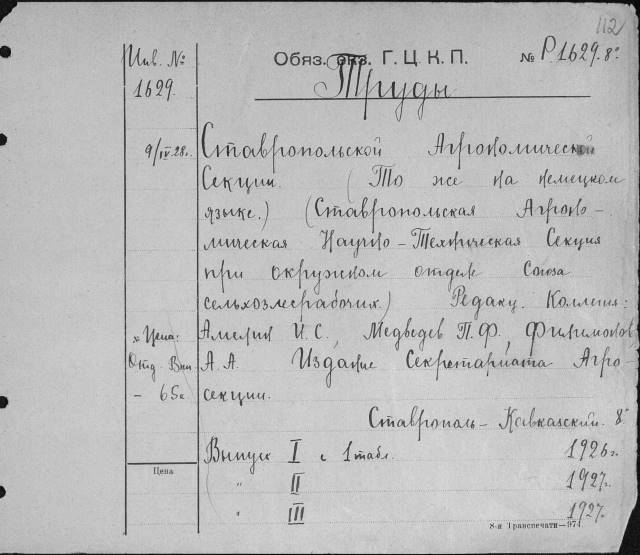 112
Инв. № Обяз. экз. Г. Ц. К. П. № Р.1629.8°
1629 Труды
9/IV.28. Ставропольской Агрономической
Секции. (То же на немецком
языке.) (Ставропольская Агроно-
мическая Научно-Техническая Секция
при окружном отделе Союза
сельхозлесрабочих.) Редакц. Коллегия:
х Цена: Амелин И. С., Медведев П. Ф., Филимонов
Отд. Вып. А. А. Издание Секретариата Агро-
- 65к секции.
Ставрополь-Кавказский. 8°
Цена
Выпуск I с 1 табл. 1926 г.
" II 1927 г.
" III 1927 г.
8-я Транспечати—974.